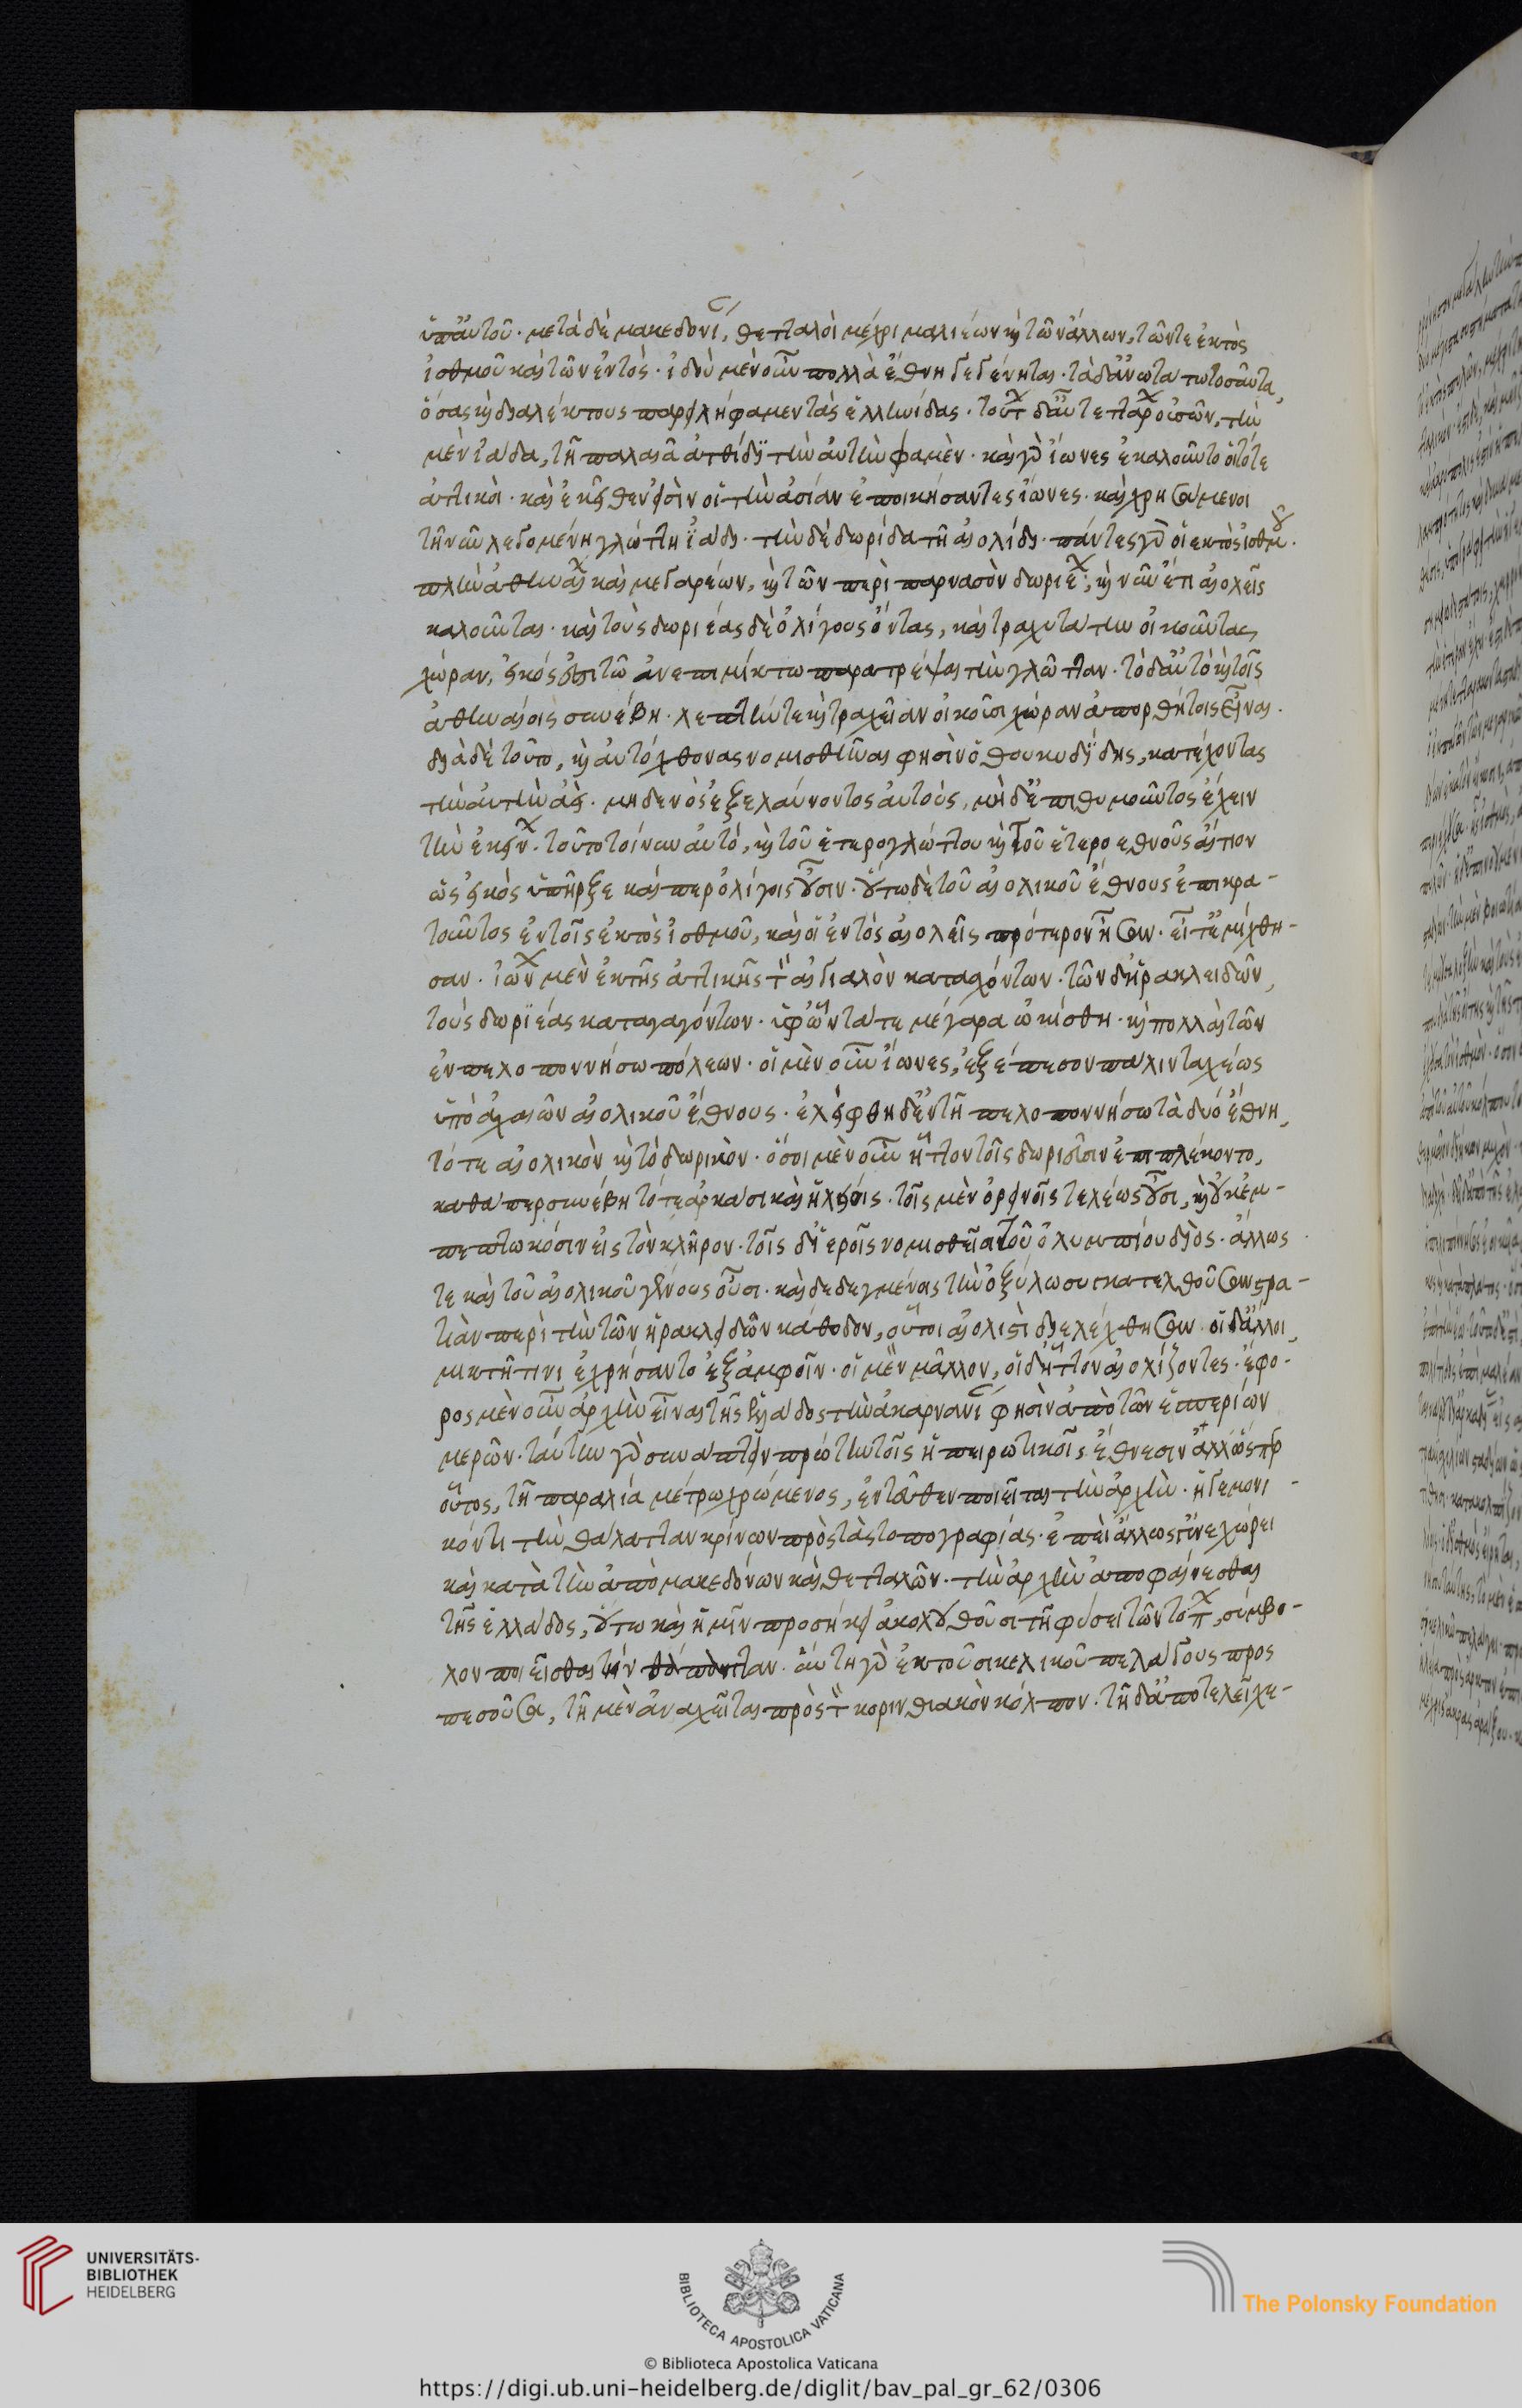 ὑπ' αὐτοῦ. μετὰ δὲ μακεδονίας, θετταλοὶ μέχρι μαλιέων καὶ τῶν ἄλλων, τῶν τε ἐκτὸς
ἰσθμοῦ καὶ τῶν ἐντός. μὲν οὖν πολλὰ ἔθνη γεγένηται. τὰ δ' ἀνωτάτω τοσαῦτα,
ὅσας καὶ διαλέκτους παρειλήφαμεν τὰς ἑλληνίδας. τούτων δ' αὐτῶν τεττάρων οὐσῶν, τὴν
μὲν ἰάδα, τῇ παλαιᾷ ἀτθίδι τὴν αὐτὴν φαμέν. καὶ γὰρ ἴωνες ἐκαλοῦντο οἱ τότε
ἀττικοί. καὶ ἐκεῖθεν εἰσὶν οἱ τὴν ἀσίαν ἐποικήσαντες ἴωνες. καὶ χρησάμενοι
τῇ νῦν λεγομένῃ γλώττῃ ἰάδι. τὴν δὲ δωρίδα τῇ αἰολίδι. πάντες γὰρ οἱ ἐκτὸς ἰσθμοῦ.
πλὴν ἀθηναίων καὶ μεγαρέων, καὶ τῶν περὶ παρνασὸν δωριέων, καὶ νῦν ἔτι αἰολεῖς
καλοῦνται. καὶ τοὺς δωριέας δὲ ὀλίγους ὄντας, καὶ τραχυτάτην οἰκοῦντας
χώραν, εἰκός ἐστι τῷ ἀνεπιμίκτω παρατρέψαι τὴν γλῶτταν. τὸ δ' αὐτὸ καὶ τοῖς
ἀθηναίοις συνέβη. λεπτήν τε καὶ τραχεῖαν οἰκοῦσι χώραν ἀπορθήτοις εἶναι.
διὰ δὲ τοῦτο, καὶ αὐτόχθονας νομισθῆναι φησὶν ὁ θουκυδίδης, κατέχοντας
τὴν αὐτὴν ἀεί. μηδενὸς ἐξελαύνοντος αὐτοὺς, μὴδ' ἐπιθυμοῦντος ἔχειν
τὴν ἐκείνων. τοῦτο τοίνυν αὐτό, καὶ τοῦ ἑτερογλώττου καὶ τοῦ ἑτεροεθνοῦς αἴτιον
ὡς εἰκὸς ὑπῆρξε καίπερ ὀλίγοις οὖσιν. οὕτω δὲ τοῦ αἰολικοῦ ἔθνους ἐπικρα-
τοῦντος ἐν τοῖς ἐκτὸς ἰσθμοῦ, καὶ οἱ ἐντὸς αἰολεῖς πρότερον ἦσαν. εἶτ' ἐμίχθη-
σαν. ἰώνων μὲν ἐκ τῆς ἀττικῆς τὸν αἰγιαλὸν κατασχόντων. τῶν δ' ἡρακλειδῶν,
τοὺς δωριέας καταγαγόντων. ὑφ' ὧν τά τε μέγαρα ὠκίσθη. καὶ πολλαὶ τῶν
ἐν πελοποννήσω πόλεων. οἱ μὲν οὖν ἴωνες, ἐξέπεσον πάλιν ταχέως
ὑπὸ ἀχαιῶν αἰολικοῦ ἔθνους. ἐλείφθη δ' ἐν τῇ πελοποννήσω τὰ δύο ἔθνη,
τό τε αἰολικὸν καὶ τὸ δωρικόν. ὅσοι μὲν οὖν ἧττον τοῖς δωριεῦσιν ἐπεπλέκοντο,
καθάπερ συνέβη τό τε ἀρκάσι καὶ ἠλείοις. τοῖς μὲν ὀρεινοῖς τελέως οὖσι, καὶ οὐκ ἐμ-
πεπτωκόσιν εἰς τὸν κλῆρον. τοῖς δ' ἱεροῖς νομισθεῖσι τοῦ ὀλυμπίου διός. ἄλλως
τε καὶ τοῦ αἰολικοῦ γένους οὖσι. καὶ δεδεγμένοις τὴν ὀξύλω συγκατελθοῦσαν στρα-
τιὰν περὶ τὴν τῶν ἡρακλειδῶν κάθοδον, οὗτοι αἰολιστὶ διελέχθησαν. οἱ δ' ἄλλοι,
μικτῇ τινι ἐχρήσαντο ἐξ ἀμφοῖν. οἱ μὲν μᾶλλον, οἱ δ' ἧττον αἰολίζοντες. ἔφο-
ρος μὲν οὖν ἀρχὴν εἶναι τῆς ἑλλάδος τὴν ἀκαρνανίαν φησὶν ἀπὸ τῶν ἑσπερίων
μερῶν. ταύτην γὰρ συνάπτειν πρώτην τοῖς ἠπειρωτικοῖς ἔθνεσιν ἀλλ' ὥσπερ
οὗτος, τῇ παραλίᾳ μέτρω χρώμενος, ἐντεῦθεν ποιεῖται τὴν ἀρχήν. ἡγεμονι-
κόν τι τὴν θάλατταν κρίνων πρὸς τὰς τοπογραφίας. ἐπεὶ ἄλλως γ' ἐνεχώρει
καὶ κατὰ τὴν ἀπὸ μακεδόνων καὶ θετταλῶν. τὴν ἀρχὴν ἀποφαίνεσθαι
τῆς ἑλλάδος, οὕτω καὶ ἡμῖν προσήκει ἀκολουθοῦσι τῇ φύσει τῶν τόπων, σύμβου-
λον ποιεῖσθαι τὴν θάλατταν. αὕτη γὰρ ἐκ τοῦ σικελικοῦ πελάγους προς
πεσοῦσα, τῇ μὲν ἀναχεῖται πρὸς τὸν κορινθιακὸν κόλπον. τῇ δ' ἀποτελεῖ χε-
UNIVERSITÄTS-
BIBLIOTHEK
HEIDELBERG
BIBLIOTECA APOSTOLICA VATICANA
© Biblioteca Apostolica Vaticana
The Polonsky Foundation
https://digi.ub.uni-heidelberg.de/diglit/bav_pal_gr_62/0306